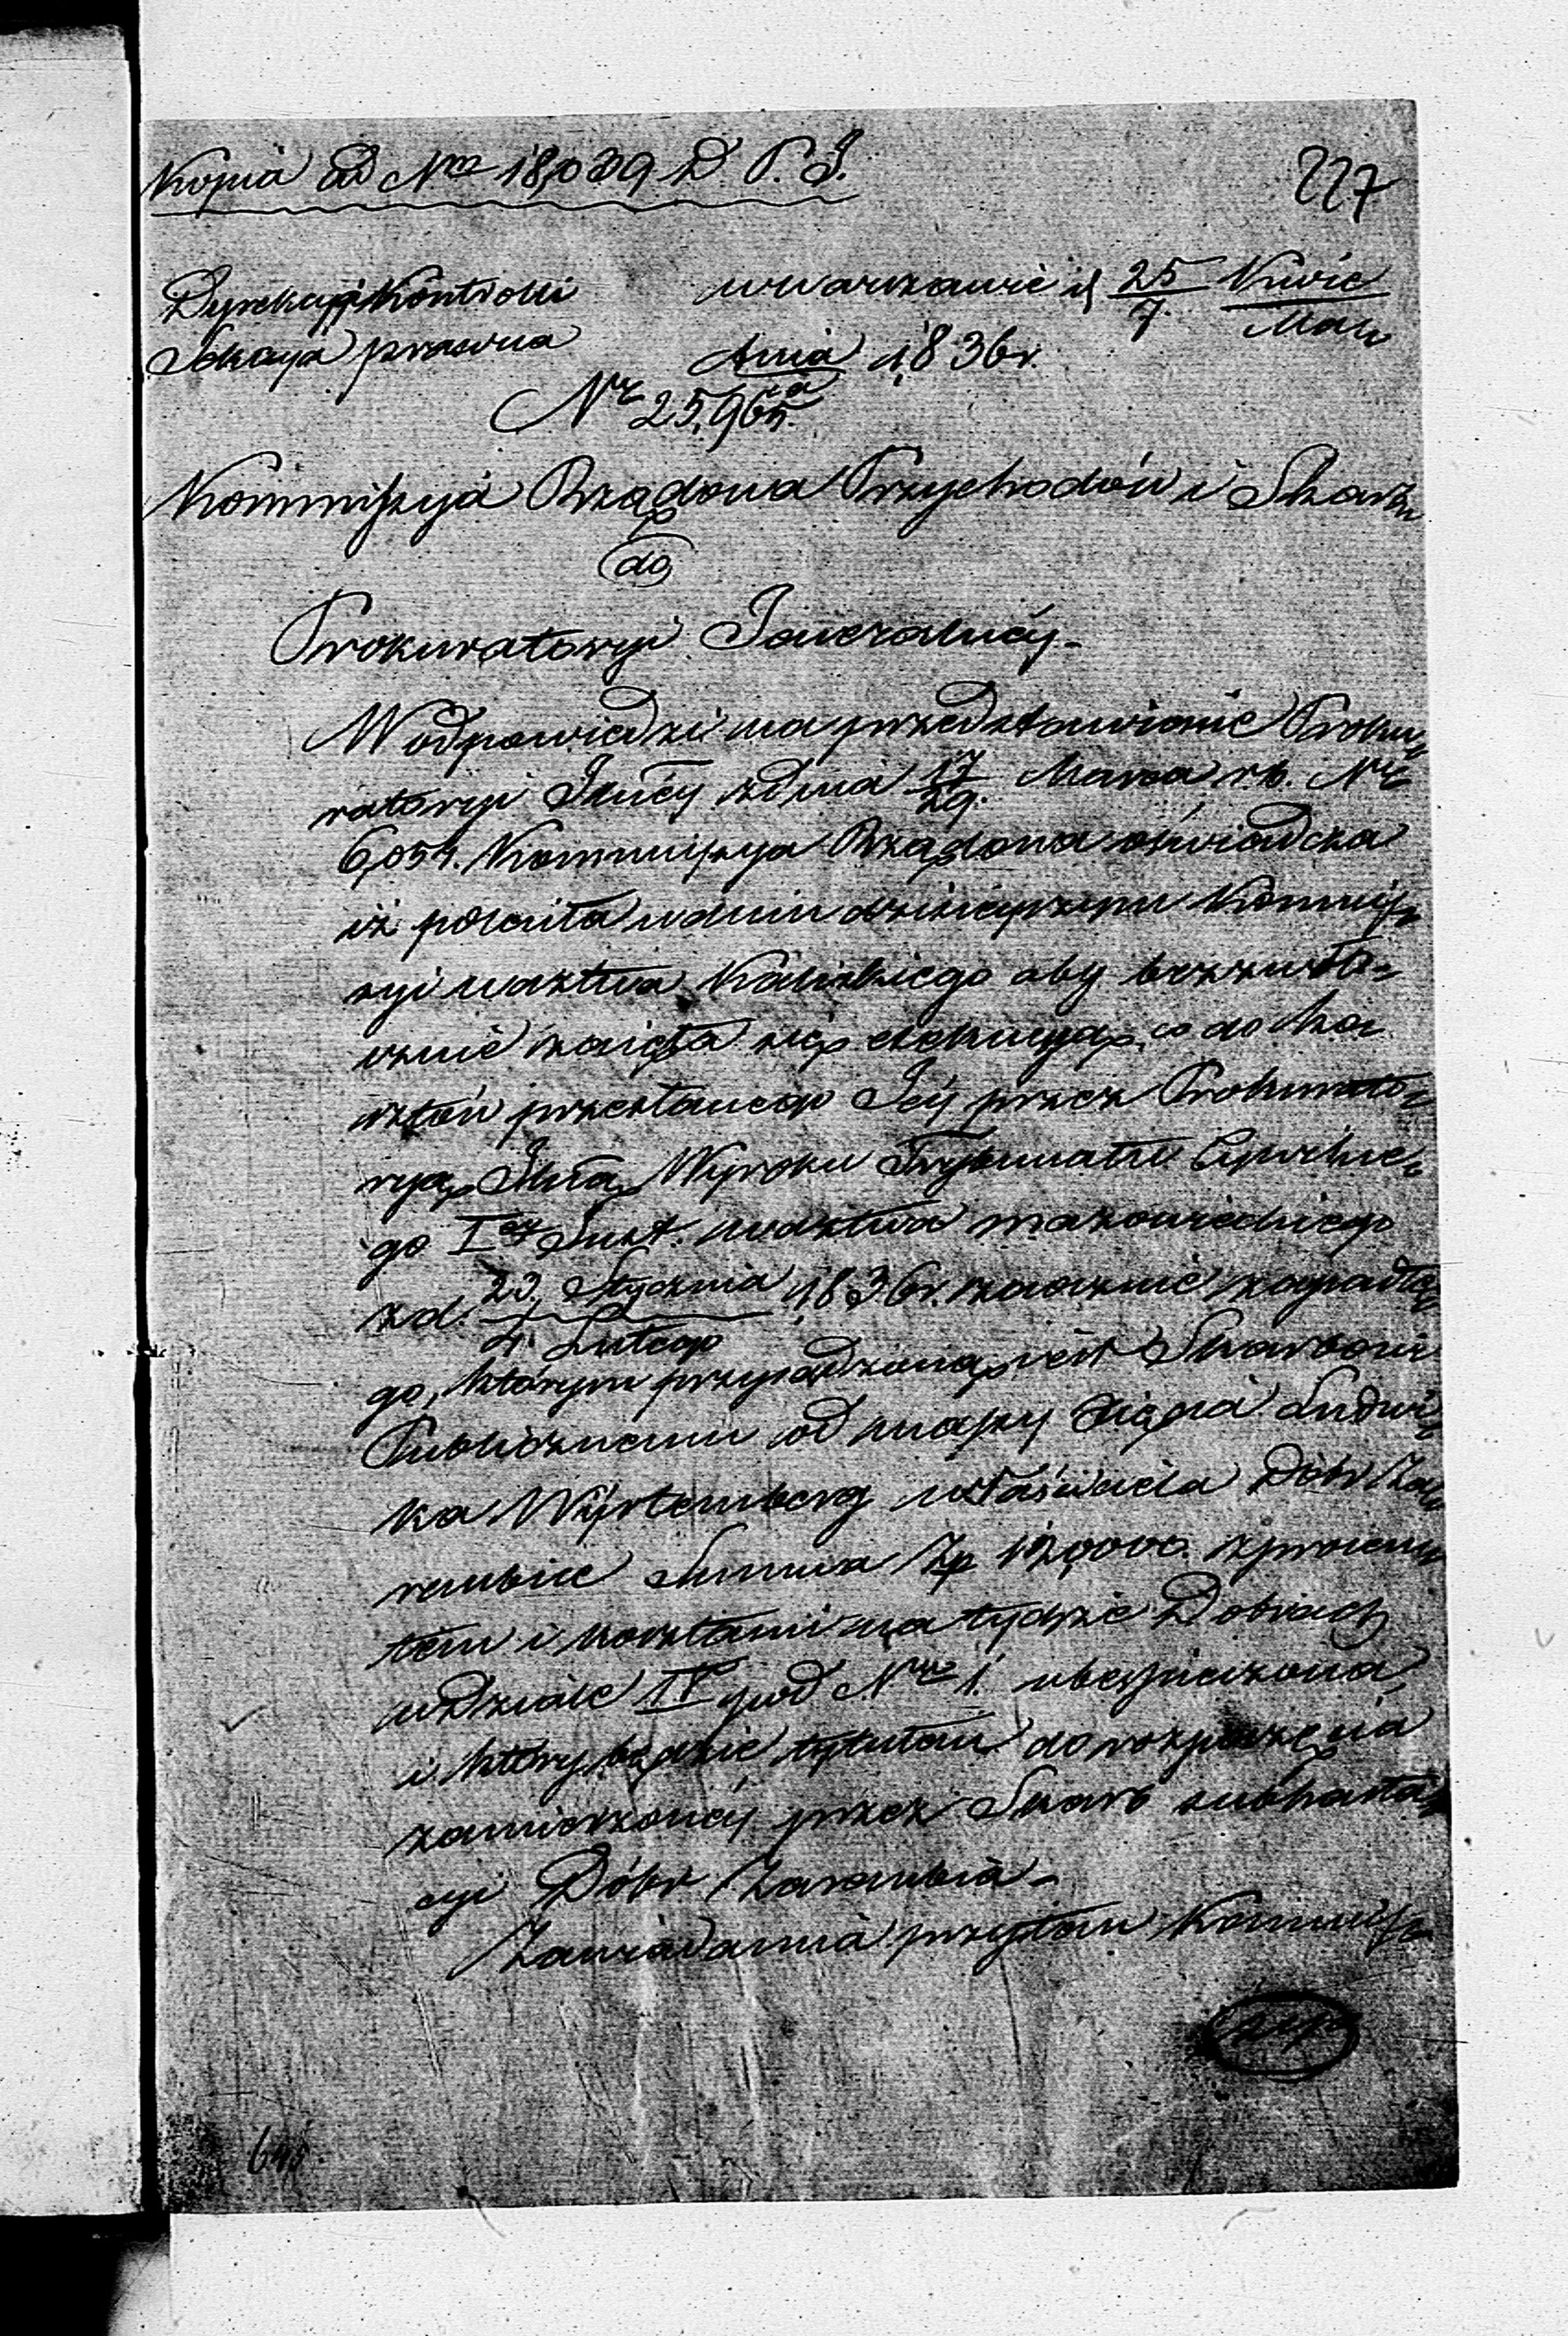 Kopia ad Nro 18,039 D. P. J.
227
Dyrekcyi Kontrolli w Warszawie d 25/7. Kwie/Maja
Sekcya prawna dnia 1836 r.
Nr 25,965.
Kommissyia Rządowa Przychodów i Skarbu
do
Prokuratoryi Jeneralnéy.
W odpowiedzi na przedstawienie Proku-
ratoryi Jnéy z dnia 17/29. Marca r. b. Nr
6,054. Kommissya Rządowa oświadcza
iż poleciła w dniu dzisieyszym Kommis-
syi wdztwa Kaliskiego aby bezzwło-
cznie zaięła się exekucyą co do ko-
sztów przesłanego Jéy przez Prokurato-
ryą Jlną Wyroku Trybunału Cywilne-
go Iéy Inst. wdztwa mazowieckiego
z d. 23. Stycznia / 4. Lutego 1836 r. zaocznie zapadłe-
go, którym przysądzoną iest Skarbowi
Publicznemu od massy Xięcia Ludwi-
ka Würtemberg właściciela Dóbr Za-
rembie Summa Zp 120,000. z procen-
tem i kosztami na tychże Dobrach
w dziale IV pod Nro 1. ubespieczona,
i który będzie tytułem do rozpoczęcia
zamierzonéy przez Skarb subhasta-
cyi Dóbr Zarembia.
Zawiadamia przytém Kommis-